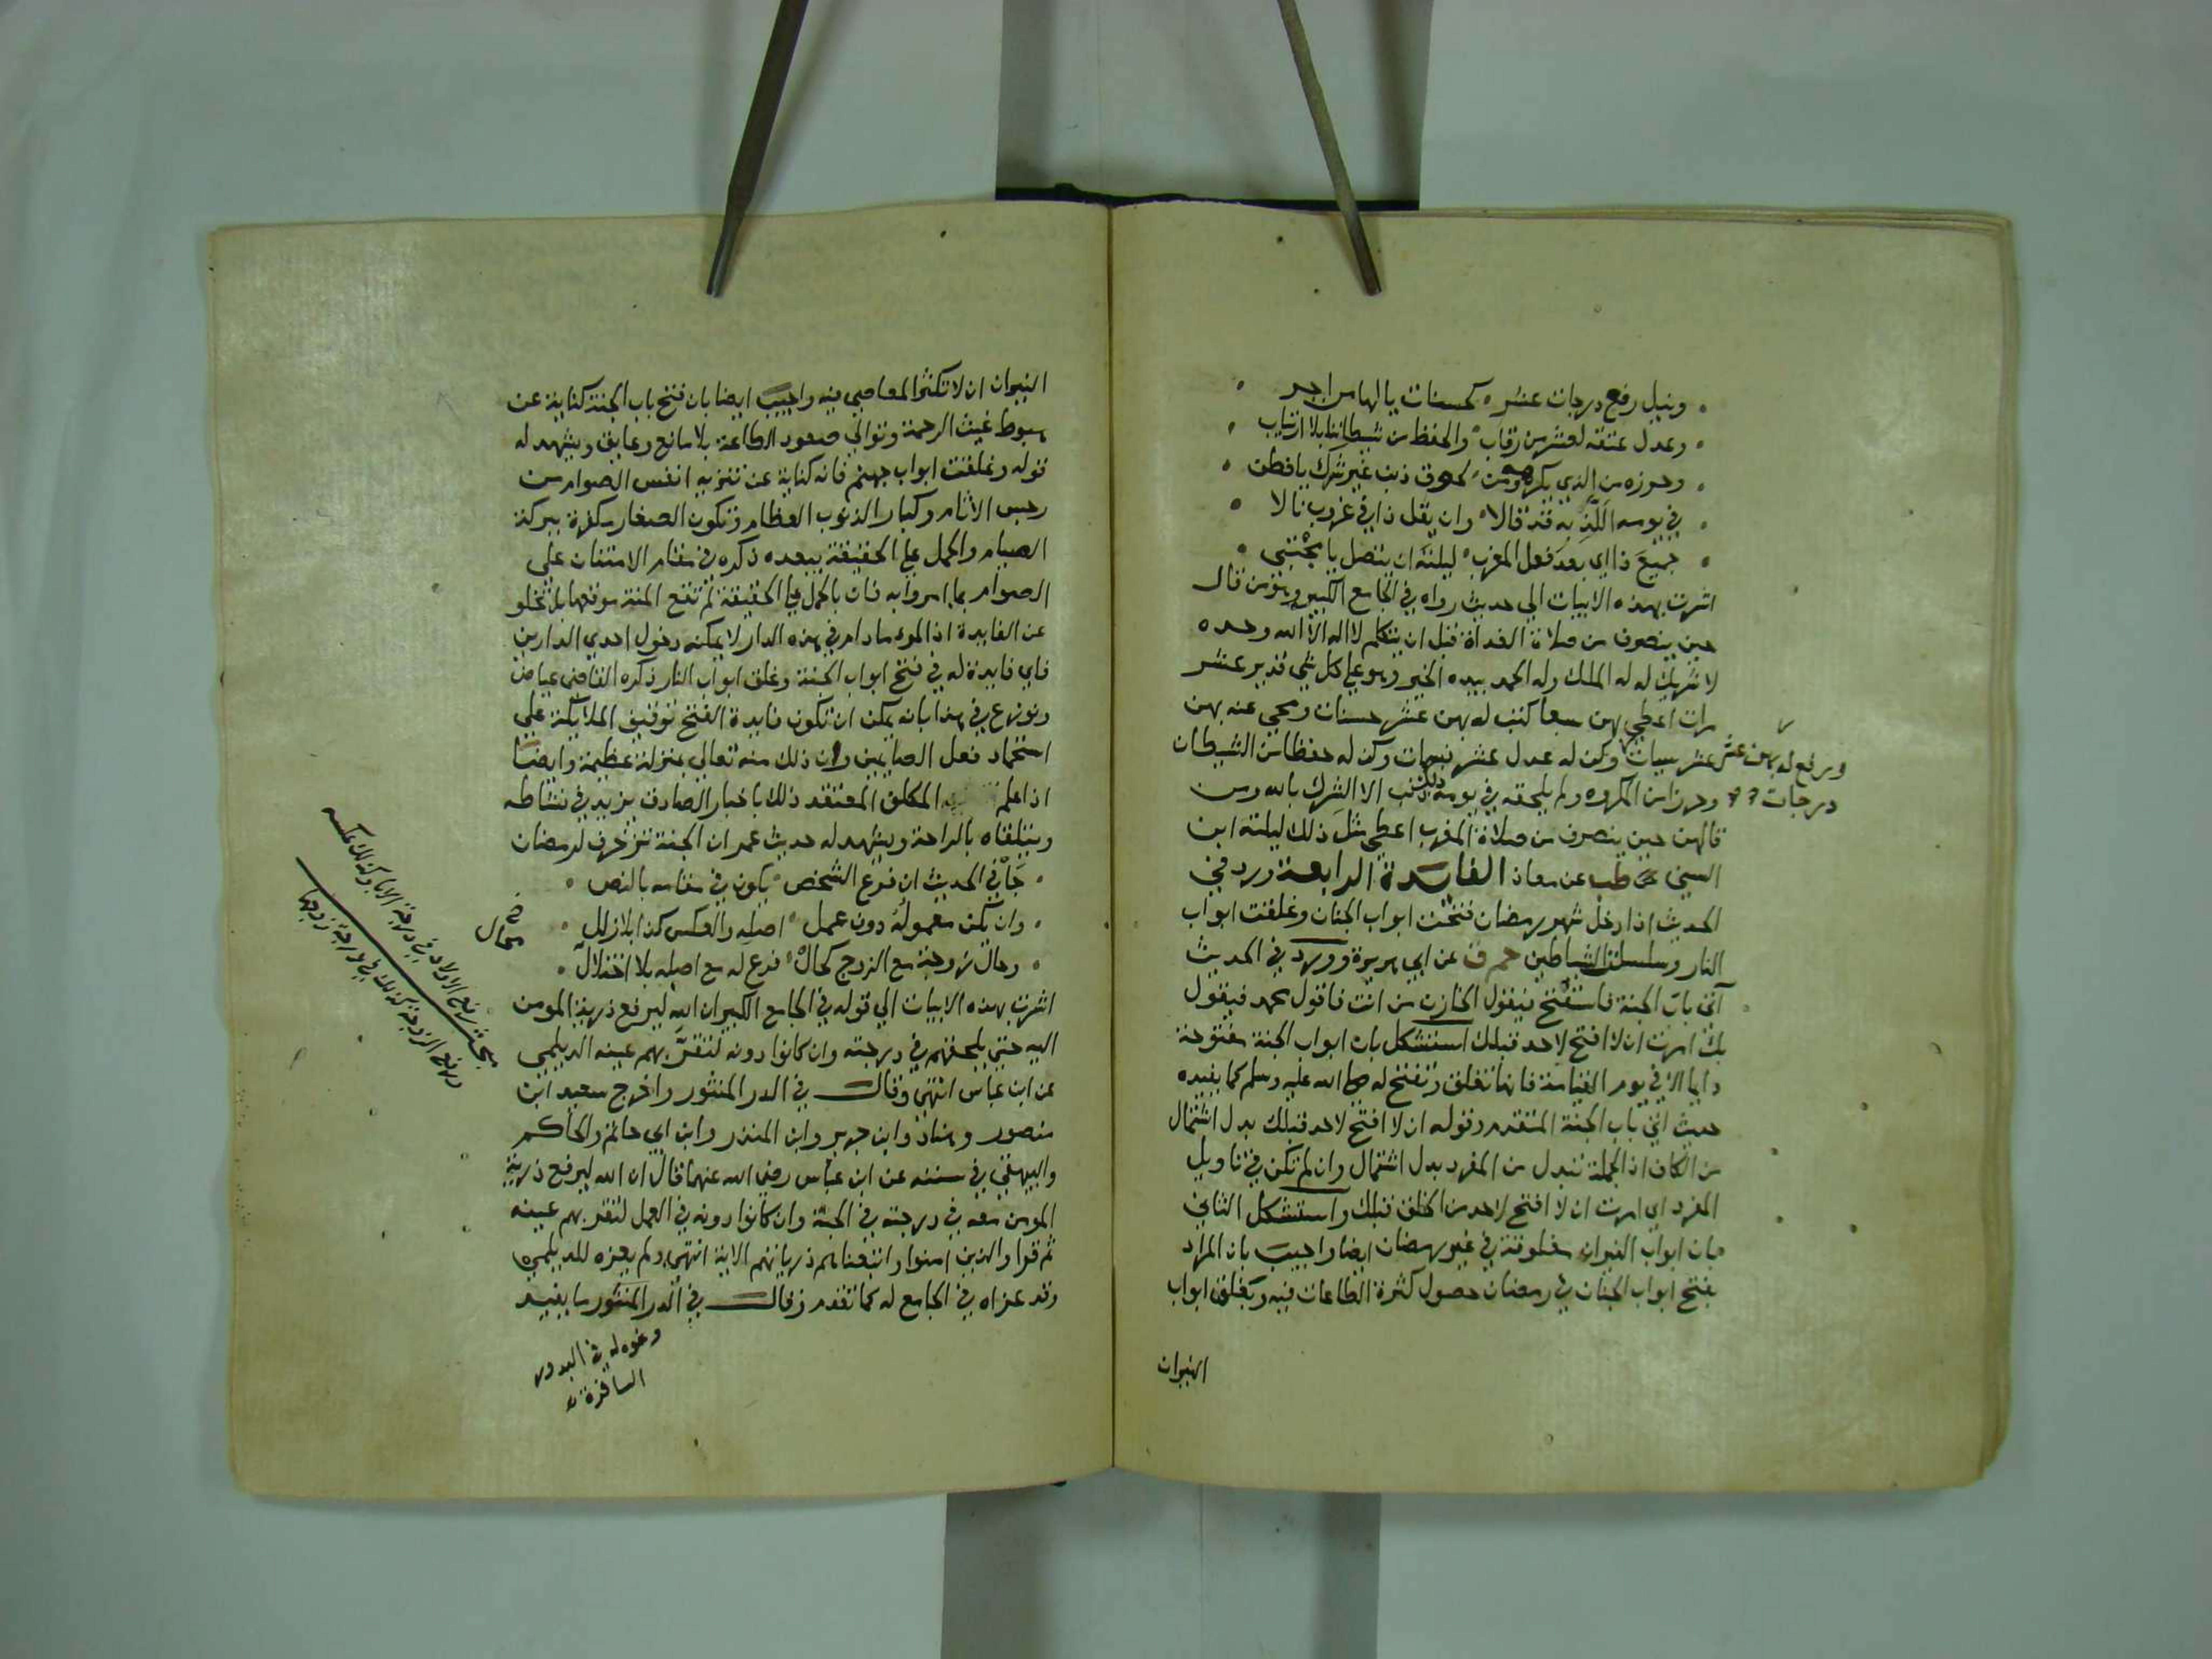 ونيل رفع درجات عشر كحسنات يالها من اجر
وعدل عتقه لعشر من رقاب والحفظ من شيطاننا بلا ارتياب
وحرزه من الذي يكرهه ومن لحوق ذنب غير شرك يا فطن
في يومه اللذ به قد قالا وان يقل ذا في غروب نالا
جميع ذا اي بعد فعل المغرب ليلته ان يتصل يا مجتبى
اشرت بهذه الابيات الي حديث رواه في الجامع الكبير وهو من قال
حين ينصرف من صلاة الغداة قبل ان يتكلم لا اله الا الله وحده
لا شريك له له الملك وله الحمد بيده الخير وهو علي كل شي قدير عشر
مرات اعطي بهن سبعا كتب له بهن عشر حسنات ومحي عنه بهن
عشر سيات وكن له عدل عشر نسمات وكن له حفظا من الشيطان
ويرفع له بهن عشر درجات
وحرزا من المكروه ولم يلحقه في يومه ذلك ذنب الا الشرك بالله ومن
قالهن حين ينصرف من صلاة المغرب اعطي مثل ذلك ليلته ابن
السني طب عن معاذ الفايدة الرابعة ورد في
الحديث اذا دخل شهر رمضان فتحت ابواب الجنان وغلقت ابواب
النار وسلسلت الشياطين حم ق عن ابي هريرة وورد في الحديث
آتي باب الجنة فاستفتح فيقول الخازن من انت فاقول محمد فيقول
بك امرت ان لا افتح لاحد قبلك استشكل بان ابواب الجنة مفتوحة
دايما الا في يوم القيامة فانها تغلق وتفتح له صلي الله عليه وسلم كما يفيده
حديث اتي باب الجنة المتقدم وقوله ان لا افتح لاحد قبلك بدل اشتمال
من الكاف اذ الجملة تبدل من المفرد بدل اشتمال وان لم تكن في تاويل
المفرد اي امرت ان لا افتح لاحد من الخلق قبلك واستشكل الثاني
بان ابواب النيران مغلوقة في غير رمضان ايضا واجيب بان المراد
بفتح ابواب الجنان في رمضان حصول كثرة الطاعات فيه وبغلق ابواب
النيران
النيران ان لا تكثر المعاصي فيه واجيب ايضا بان فتح باب الجنة كناية عن
هبوط غيث الرحمة وتوالي صعود الطاعة بلا مانع وعايق ويشهد له
قوله وغلقت ابواب جهنم فانه كناية عن تنزيه انفس الصوام من
رجس الاثام وكبار الذنوب العظام وتكون الصغار مكفرة ببركة
الصيام والحمل علي الحقيقة يبعده ذكره في مقام الامتنان علي
الصوام بما امروا به فان بالحمل علي الحقيقة لم تقع المنة موقعها بل تخلو
عن الفايدة اذ المرء ما دام في هذه الدار لا يمكنه دخول احدي الدارين
فاي فايدة له في فتح ابواب الجنة وغلق ابواب النار ذكره القاضي عياض
ونوزع في هذا بانه يمكن ان تكون فايدة الفتح توقيف الملايكة علي
استحماد فعل الصايمين وان ذلك منه تعالي بمنزلة عظيمة وايضا
اذا علم المكلف المعتقد ذلك باخبار الصادق يزيد في نشاطه
ويتلقاه بالراحة ويشهد له حديث عمر ان الجنة تزخرف لرمضان
جا في الحديث ان فرع الشخص يكون في مقامه بالنص
وان تكن معموله دون عمل اصله والعكس كذا بلا زلل
وحال زوجة مع الزوج كحال فرع له مع اصله بلا اختلال
اشرت بهذه الابيات الي قوله في الجامع الكبير ان الله ليرفع ذرية المومن
اليه حتي يلحقهم في درجته وان كانوا دونه لتقر بهم عينه الديلمي
عن ابن عباس انتهي وقال في الدر المنثور واخرج سعيد ابن
منصور وهناد وابن جرير وابن المنذر وابن ابي حاتم والحاكم
والبيهقي في سننه عن ابن عباس رضي الله عنهما قال ان الله ليرفع ذرية
المومن معه في درجته في الجنة وان كانوا دونه في العمل لتقر بهم عينه
ثم قرا والذين امنوا واتبعناهم ذرياتهم الاية انتهي ولم يعزه للديلمي
وقد عزاه في الجامع له كما تقدم وقال في الدر المنثور ما يفيد
ونحوه له في البدور
السافرة
مبحث رفع الاولاد في درجة الاباء وكذلك عكسه
ورفع الزوجة كذلك في درجة زوجها